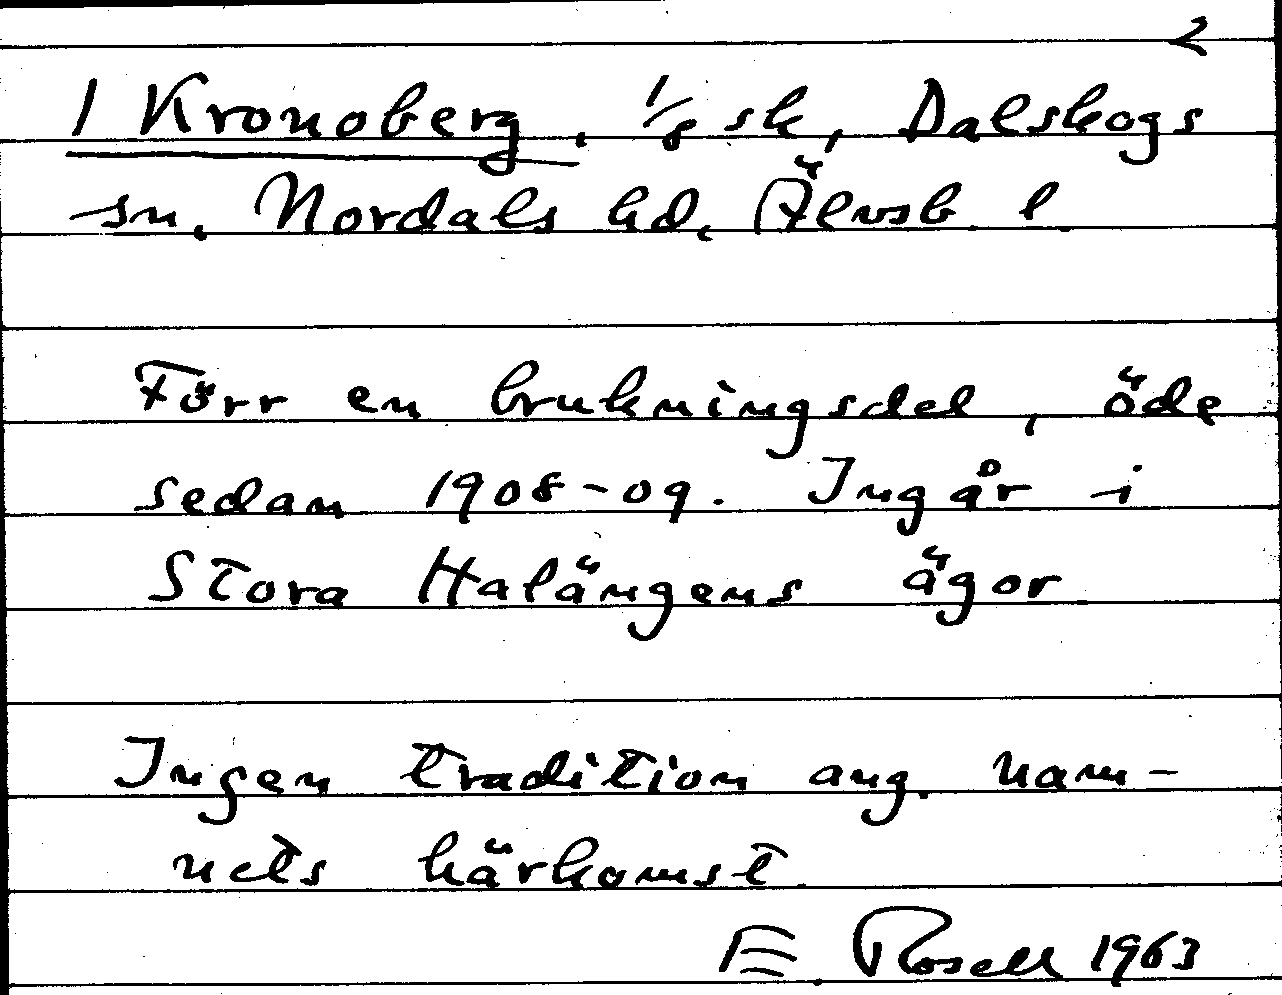 2
1 Kronoberg, 1/8 sk, Dalskogs
sn, Nordals hd, Älvsb. l.
Förr en brukningsdel, öde
sedan 1908-09. Ingår i
Stora Halängens ägor.
Ingen tradition ang. nam-
nets härkomst.
E. Rosell 1963